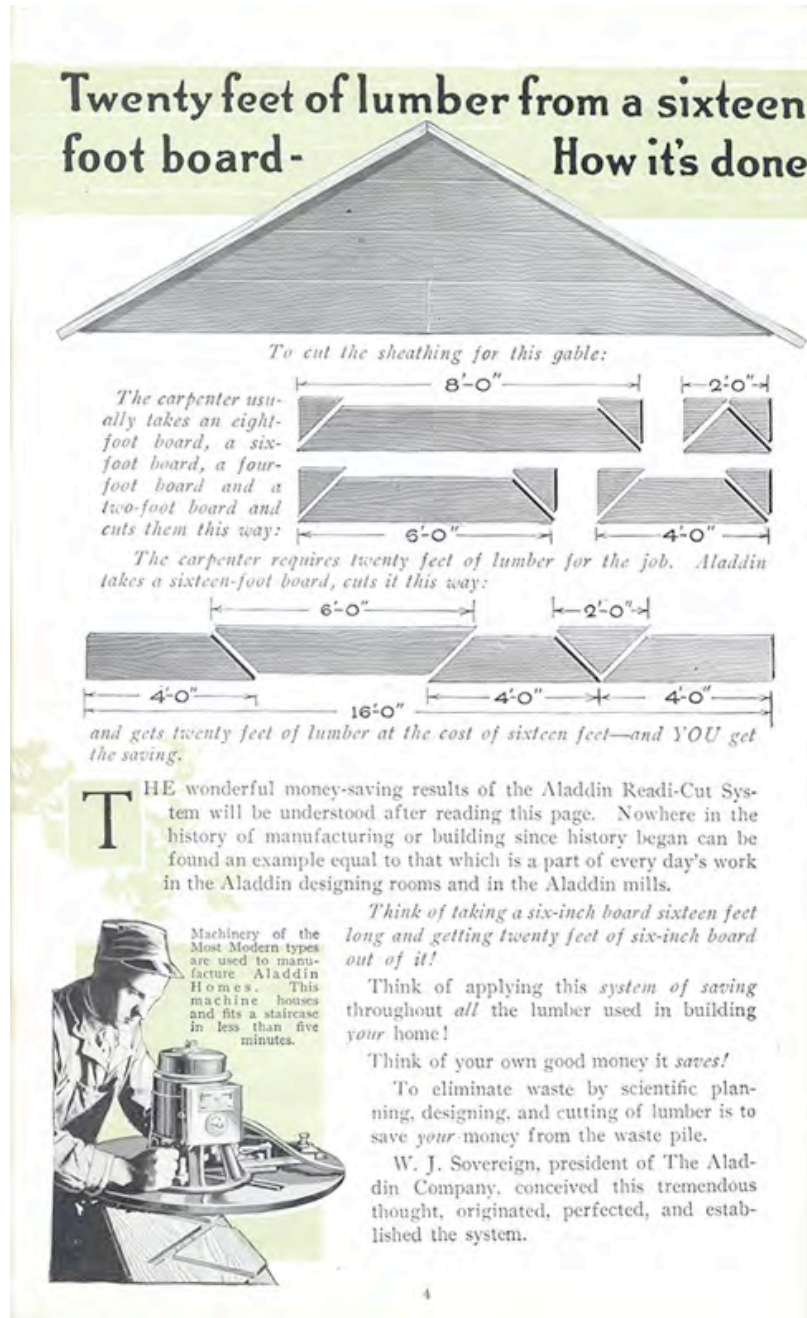 Twenty feet of lumber from a sixteen
foot board- How it's done
To cut the sheathing for this gable:
8'-0" 2'-0"
The carpenter usu-
ally takes an eight-
foot board, a six-
foot board, a four-
foot board and a
two-foot board and
cuts them this way:
6'-0" 4'-0"
The carpenter requires twenty feet of lumber for the job. Aladdin
takes a sixteen-foot board, cuts it this way:
6'-0" 2'-0"
4'-0" 4'-0" 4'-0"
16'-0"
and gets twenty feet of lumber at the cost of sixteen feet—and YOU get
the saving.
THE wonderful money-saving results of the Aladdin Readi-Cut Sys-
tem will be understood after reading this page. Nowhere in the
history of manufacturing or building since history began can be
found an example equal to that which is a part of every day's work
in the Aladdin designing rooms and in the Aladdin mills.
Machinery of the
Most Modern types
are used to manu-
facture Aladdin
Homes. This
machine houses
and fits a staircase
in less than five
minutes.
Think of taking a six-inch board sixteen feet
long and getting twenty feet of six-inch board
out of it!
Think of applying this system of saving
throughout all the lumber used in building
your home!
Think of your own good money it saves!
To eliminate waste by scientific plan-
ning, designing, and cutting of lumber is to
save your money from the waste pile.
W. J. Sovereign, president of The Alad-
din Company, conceived this tremendous
thought, originated, perfected, and estab-
lished the system.
4